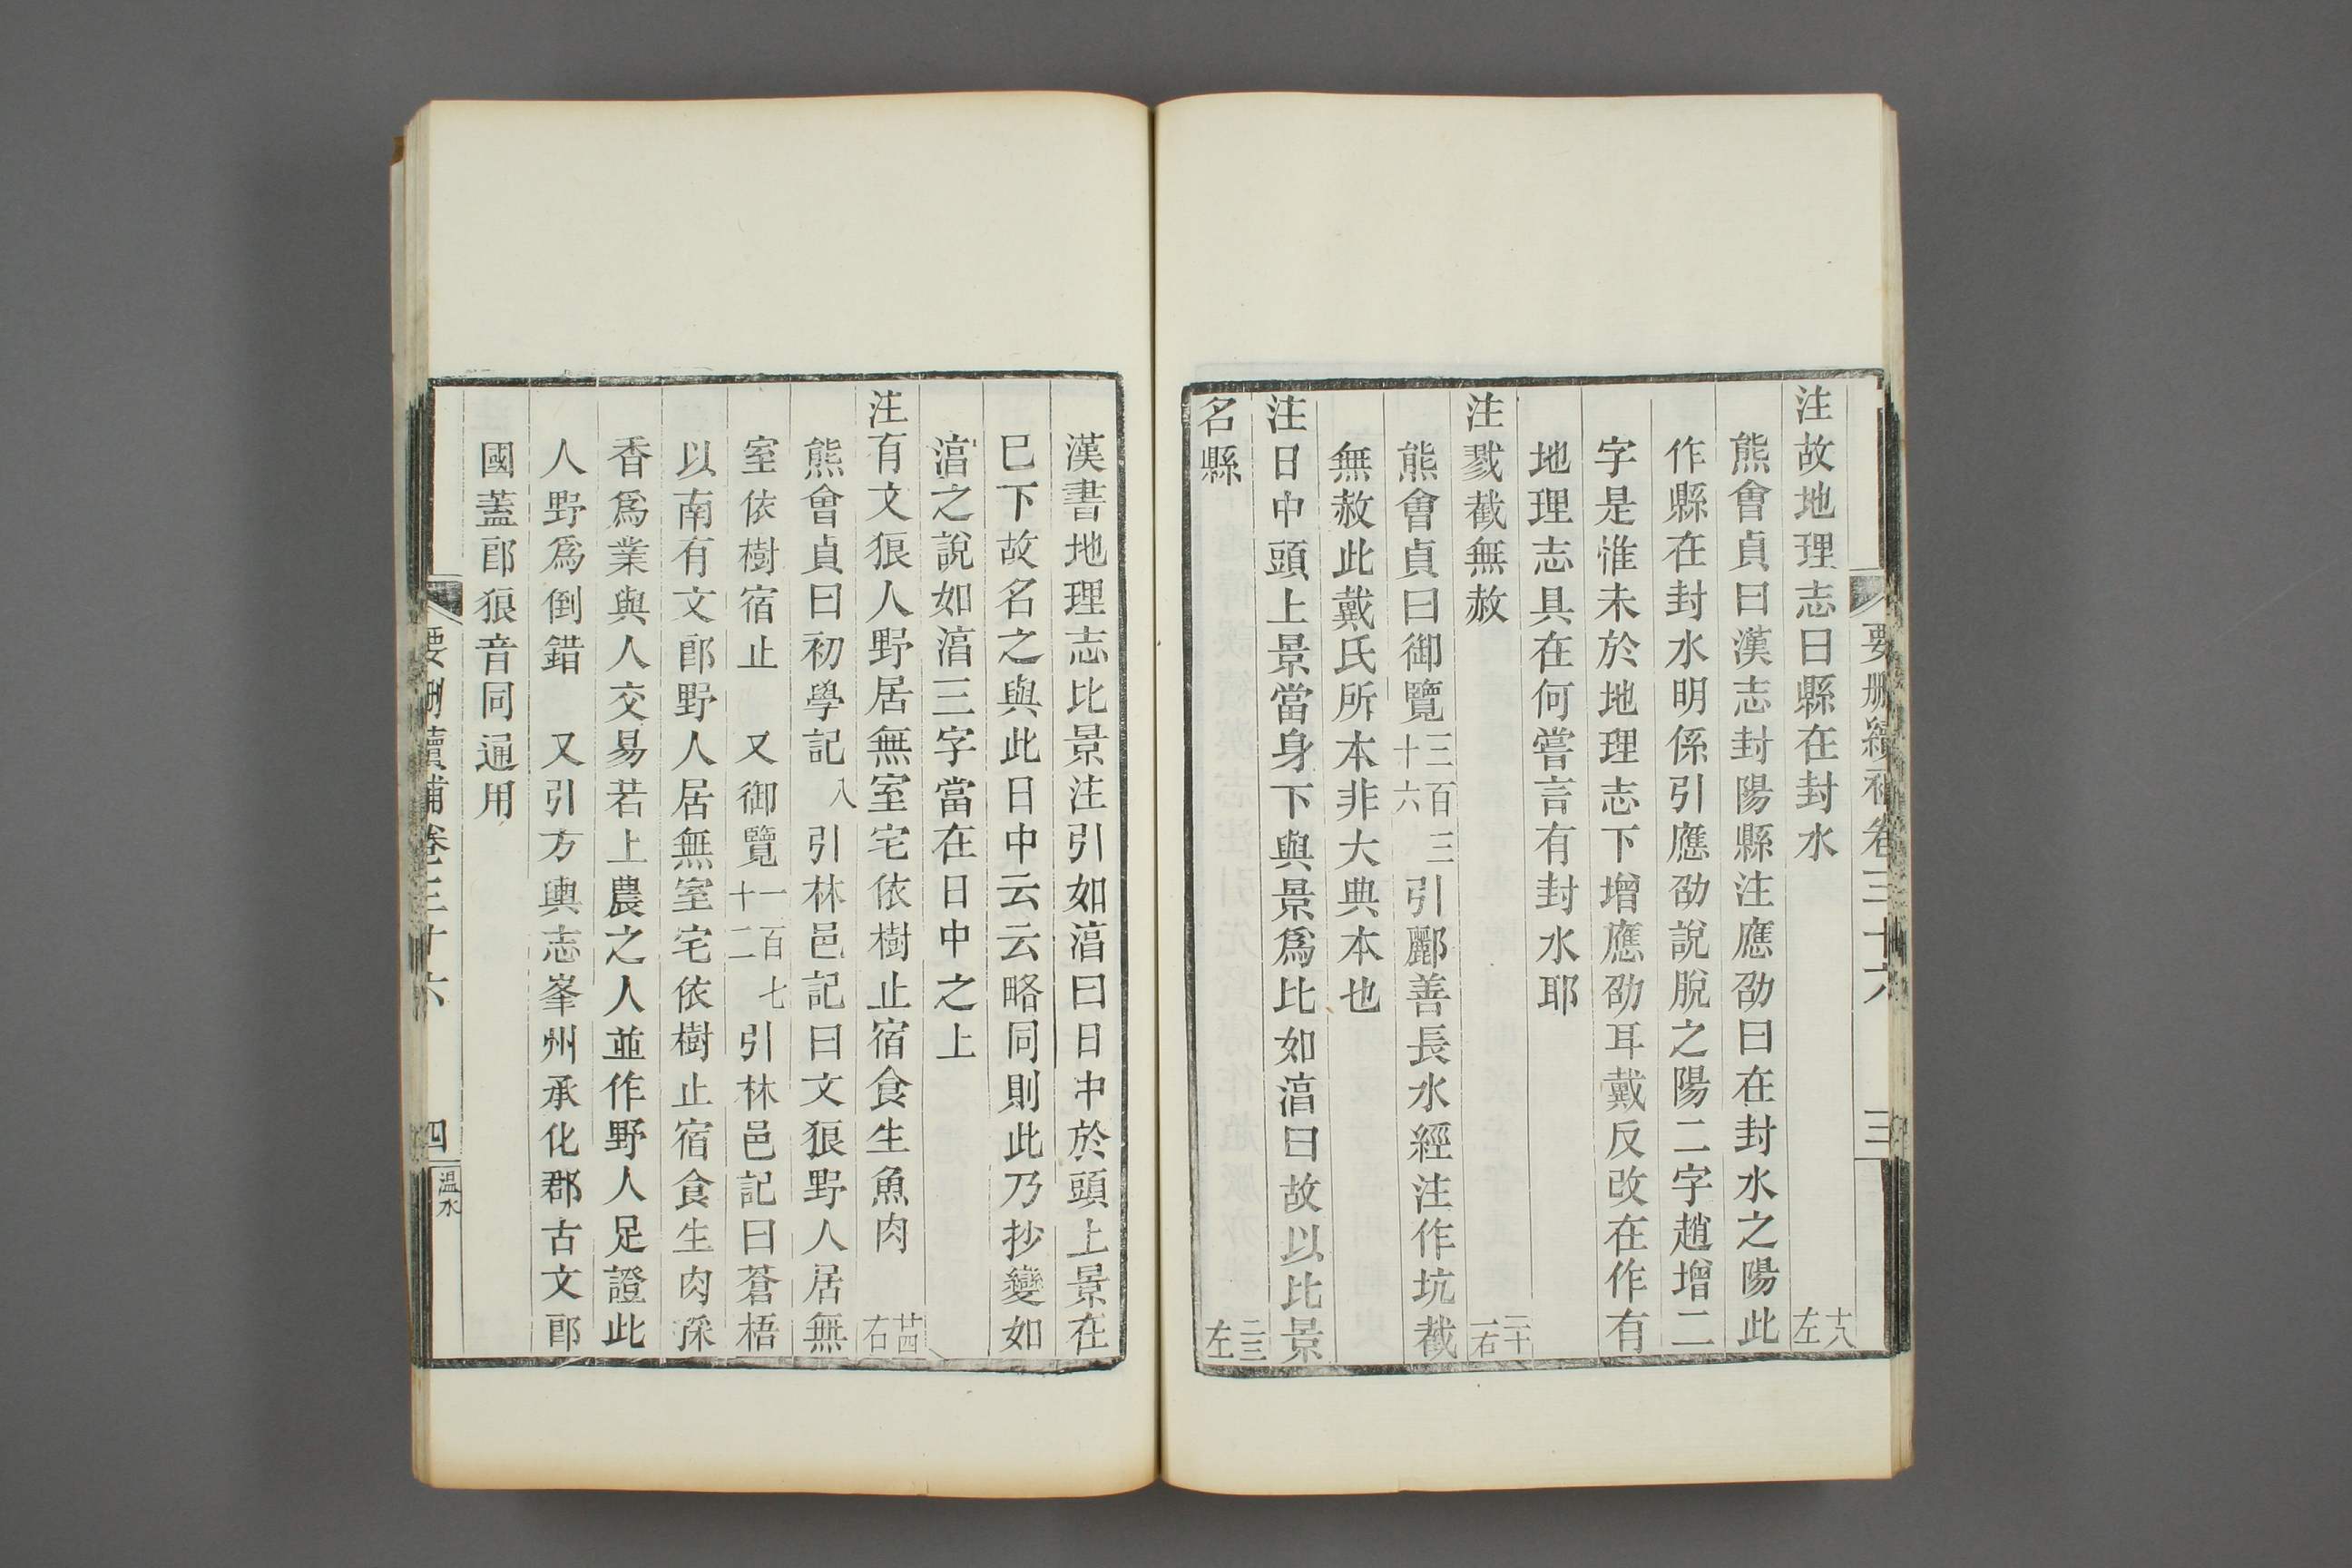 要刪續補卷三十六　三
注故地理志曰縣在封水　十八左
熊會貞曰漢志封陽縣注應劭曰在封水之陽此
作縣在封水明係引應劭說脫之陽二字趙增二
字是惟未於地理志下增應劭耳戴反改在作有
地理志具在何嘗言有封水耶
注戮截無赦　二十一右
熊會貞曰御覽三百三十六引酈善長水經注作坑截
無赦此戴氏所本非大典本也
注日中頭上景當身下與景爲比如湻曰故以比景
名縣　二三左
漢書地理志比景注引如湻曰日中於頭上景在
巳下故名之與此日中云云略同則此乃抄變如
湻之說如湻三字當在日中之上
注有文狼人野居無室宅依樹止宿食生魚肉　廿四右
熊會貞曰初學記八引林邑記曰文狼野人居無
室依樹宿止　又御覽一百七十二引林邑記曰蒼梧
以南有文郎野人居無室宅依樹止宿食生肉採
香爲業與人交易若上農之人並作野人足證此
人野爲倒錯　又引方輿志峯州承化郡古文郎
國蓋郎狼音同通用
要刪續補卷三十六　四　溫水